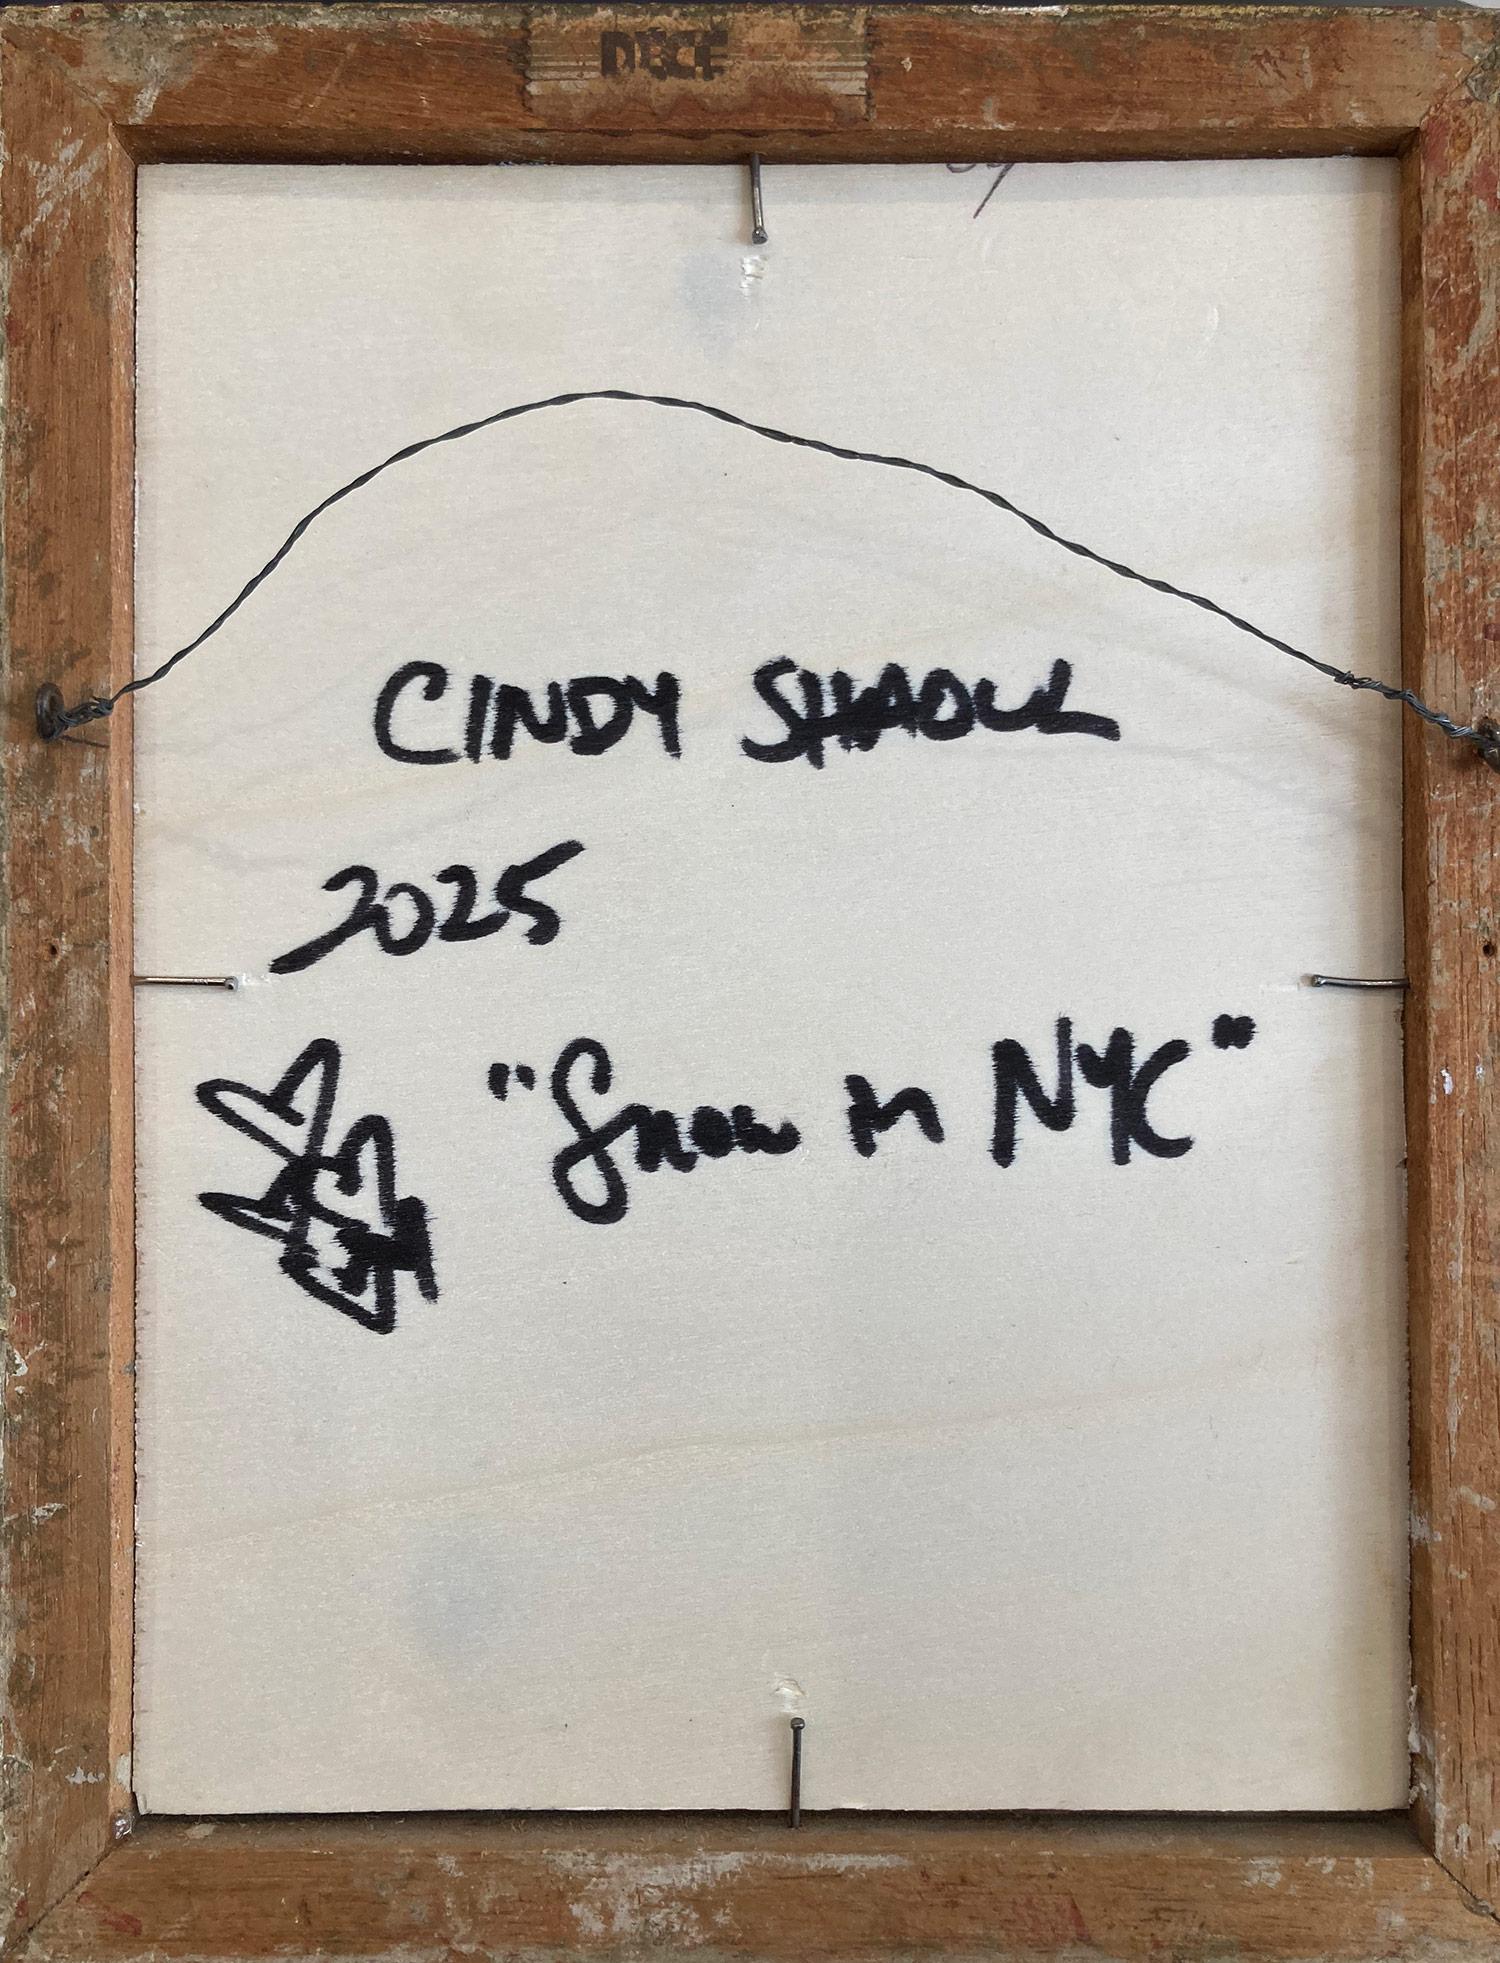 CINDY SHAOUL
2025
"Snow in NYC"